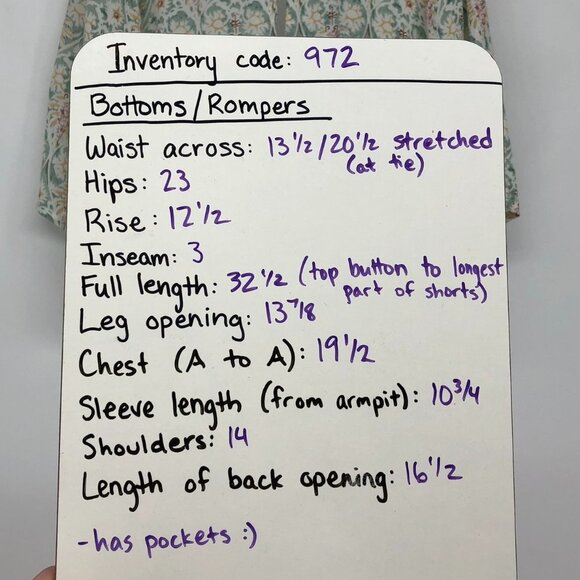 Inventory code: 972
Bottoms/Rompers
Waist across: 13 1/2 / 20 1/2 stretched
(at tie)
Hips: 23
Rise: 12 1/2
Inseam: 3
Full length: 32 1/2 (top button to longest
part of shorts)
Leg opening: 13 7/8
Chest (A to A): 19 1/2
Sleeve length (from armpit): 10 3/4
Shoulders: 14
Length of back opening: 16 1/2
-has pockets :)